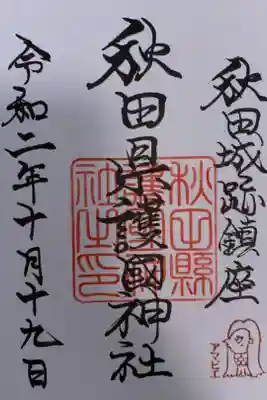 秋田城跡鎮座
秋田県護國神社
令和二年十月十九日
秋田縣護國神社之印
アマビエ